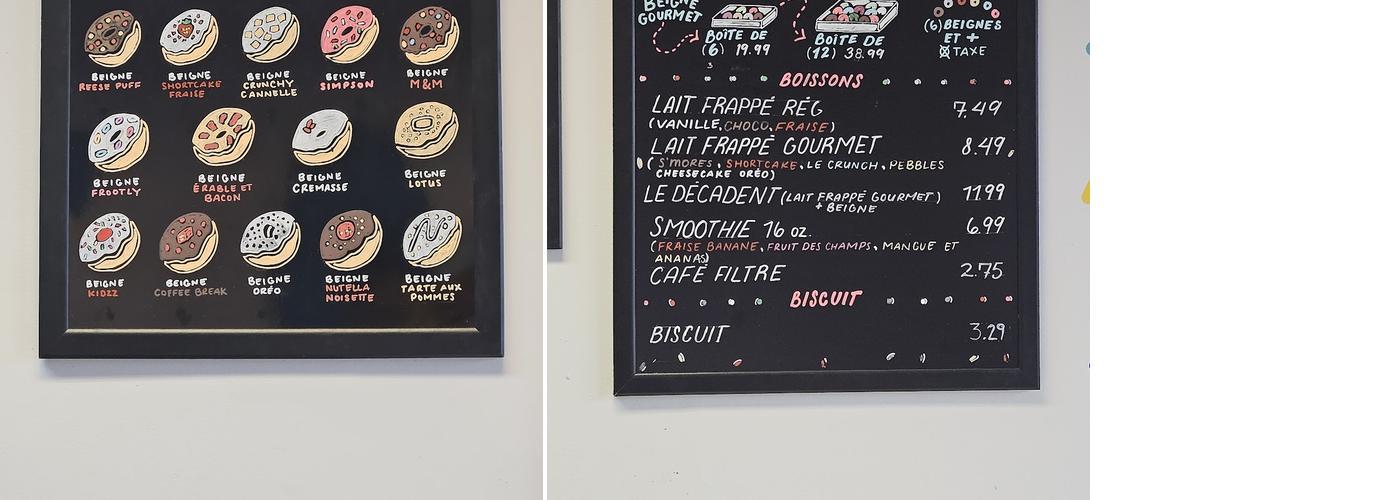 BEIGNE
REESE PUFF
BEIGNE
SHORTCAKE
FRAISE
BEIGNE
CRUNCHY
CANNELLE
BEIGNE
SIMPSON
BEIGNE
M&M
BEIGNE
FROOTLY
BEIGNE
ÉRABLE ET
BACON
BEIGNE
CREMASSE
BEIGNE
LOTUS
BEIGNE
KIDZZ
BEIGNE
COFFEE BREAK
BEIGNE
ORÉO
BEIGNE
NUTELLA
NOISETTE
BEIGNE
TARTE AUX
POMMES
BEIGNE
GOURMET
BOÎTE DE
(6) 19.99
BOÎTE DE
(12) 38.99
(6) BEIGNES
ET +
TAXE
BOISSONS
LAIT FRAPPÉ RÉG 7.49
(VANILLE, CHOCO, FRAISE)
LAIT FRAPPÉ GOURMET 8.49
(S'MORES, SHORTCAKE, LE CRUNCH, PEBBLES
CHEESECAKE ORÉO)
LE DÉCADENT (LAIT FRAPPÉ GOURMET) 11.99
+ BEIGNE
SMOOTHIE 16 oz. 6.99
(FRAISE BANANE, FRUIT DES CHAMPS, MANGUE ET
ANANAS)
CAFÉ FILTRE 2.75
BISCUIT
BISCUIT 3.29